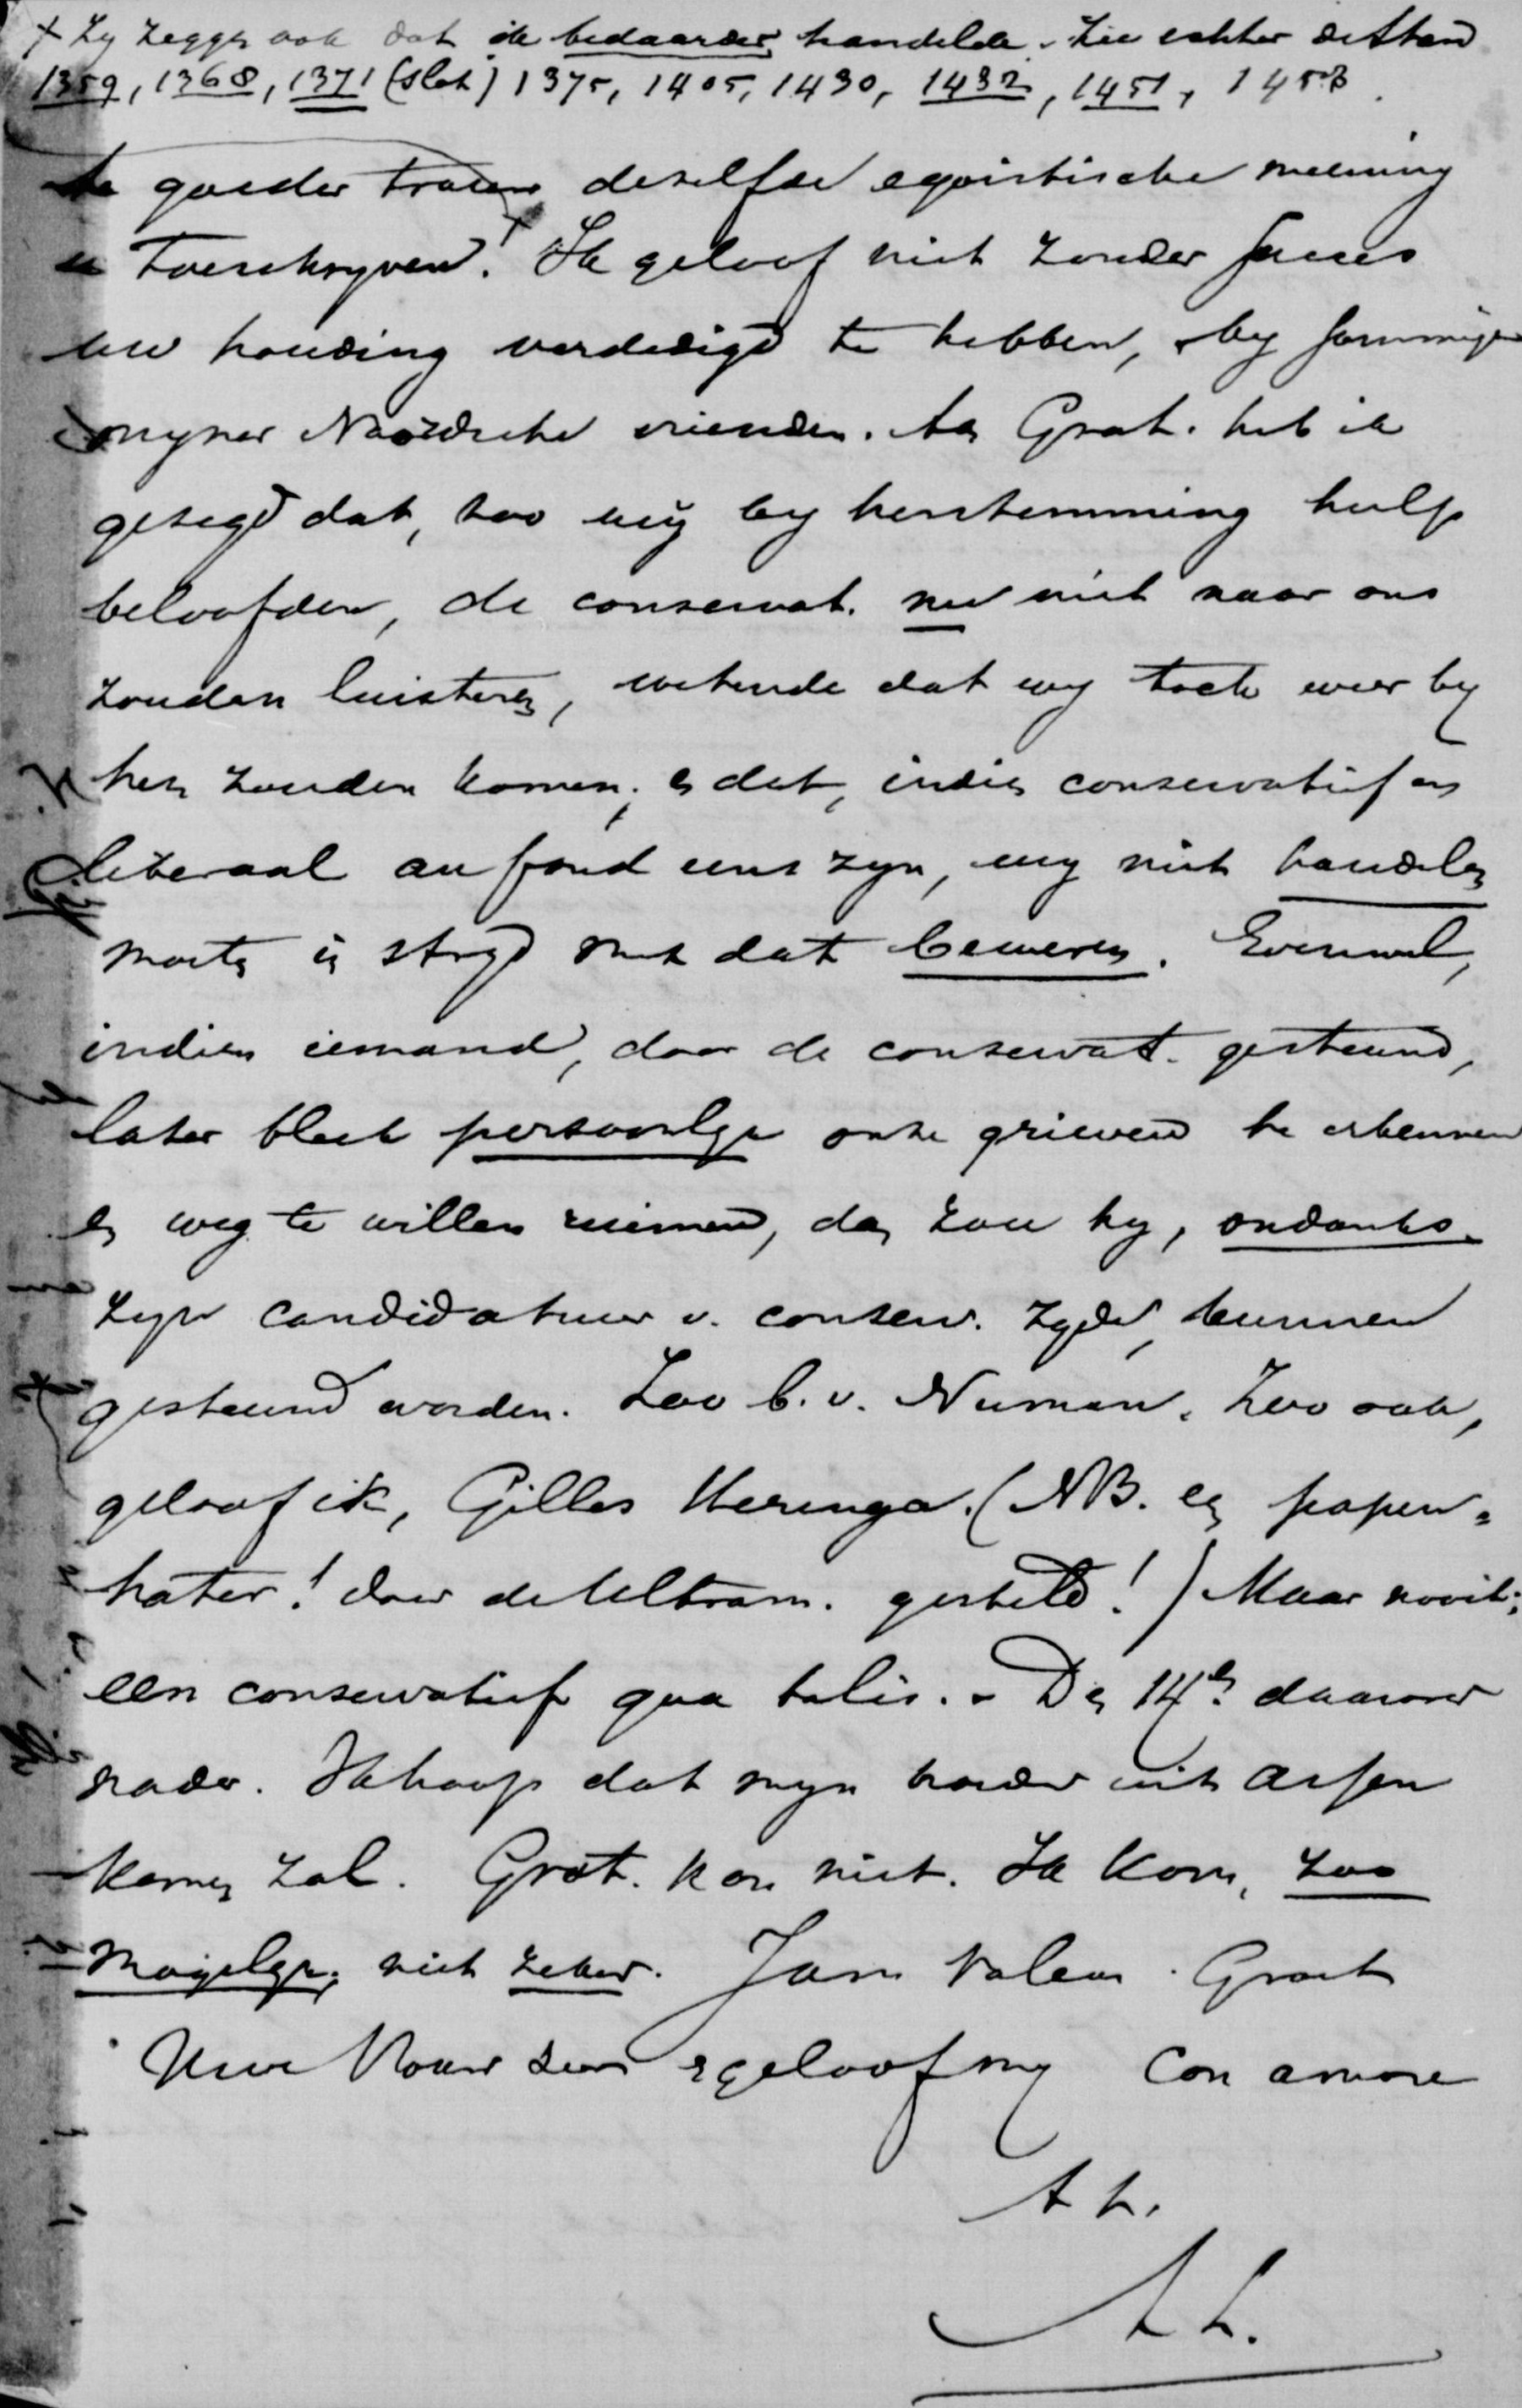 + Zy zeggen ook dat ik bedaarder handelde. Zie echter de Stand
1359, 1368, 1371 (slot) 1375, 1405, 1430, 1432, 1451, 1453.
te goeder trouw dezelfde egoistische meening
toeschryven.+ Ik geloof niet zonder succes
uw houding verdedigd te hebben, by sommigen
myner Noordsche vrienden. Aan Grot. heb ik
gezegd dat, zoo wij by herstemming hulp
beloofden, de conservat. nu niet naar ons
zouden luisteren, wetende dat wy toch weer by
hen zouden komen; en dat, indien conservatief en
liberaal au fond eens zyn, wy niet handelen
moeten in stryd met dat beweren. Evenwel,
indien iemand, door de conservat. gesteund,
later bleek persoonlyk onze grieven te erkennen
en weg te willen ruimen, dan zou hy, ondanks
zyn candidatuur v. conserv. zyde, kunnen
gesteund worden. Zoo b.v. Numan. Zoo ook,
geloof ik, Gilles Heringa. (NB. een papen-
hater! door de Ultram. gesteld!) Maar nooit;
een conservatief qua talis. - Den 14en daarover
nader. Ik hoop dat myn broeder uit Assen
komen zal. Grot. kan niet. Ik kom, zoo
mogelyk; niet zeker. Jam vale. Groet
Uwe Vrouw zeer & geloof my con amore
t. t.
A L.